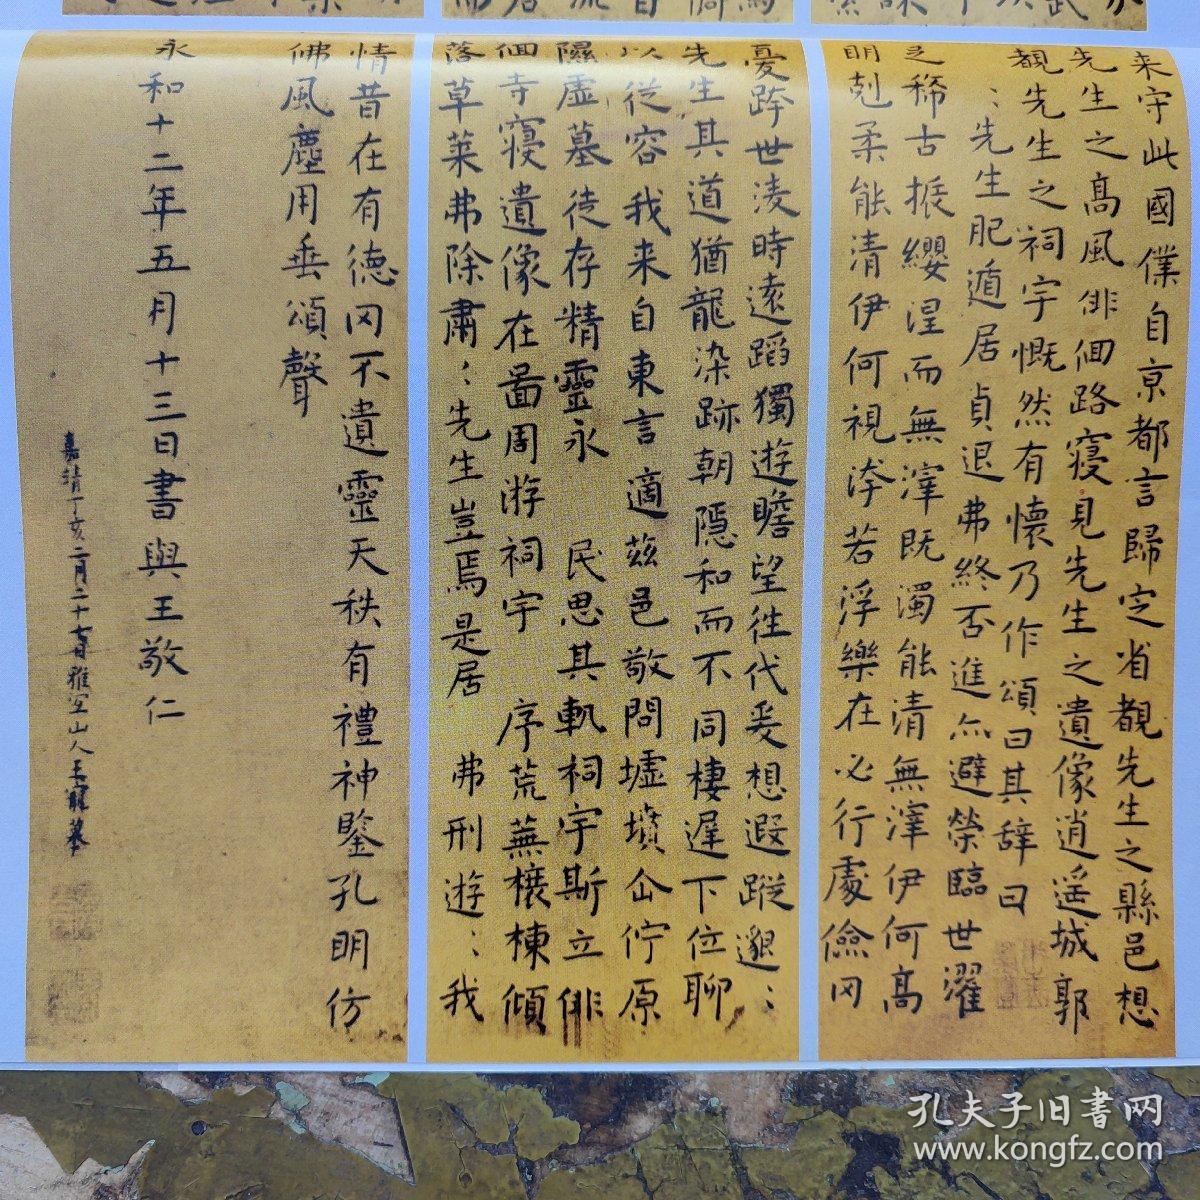 来守此國僕自京都言歸定省覩先生之縣邑想
先生之高風俳佪路寝見先生之遺像逍遥城郭
覩先生之祠宇慨然有懐乃作頌曰其辞曰
：先生肥遁居貞退弗終否進亦避榮臨世濯
之稀古振纓涅而無滓既濁能清無滓伊何高
明剋柔能清伊何視汙若浮樂在必行處儉罔
憂跨世凌時遠蹈獨遊瞻望往代爰想遐蹤邈：
先生其道猶龍染跡朝隠和而不同棲遅下位聊
以従容我来自東言適茲邑敬問墟墳企佇原
隰虚墓徒存精靈永 民思其軌祠宇斯立俳
佪寺寝遺像在啚周游祠宇 序荒蕪榱棟傾
落草萊弗除肅：先生豈焉是居 弗刑遊：我
情昔在有德罔不遺靈天秩有禮神鑒孔明仿
佛風塵用垂頌聲
永和十二年五月十三日書與王敬仁
嘉靖丁亥二月二十七日雅宜山人王寵摹
孔夫子旧书网
www.kongfz.com